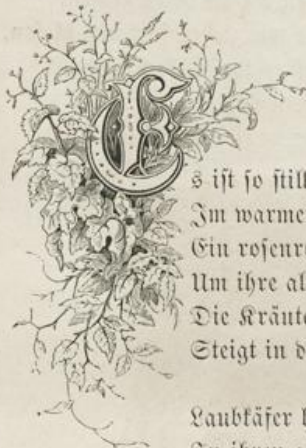 Es ist so still
Im warme
Ein rosenr
Um ihre al
Die Kräute
Steigt in d
Laubkäfer